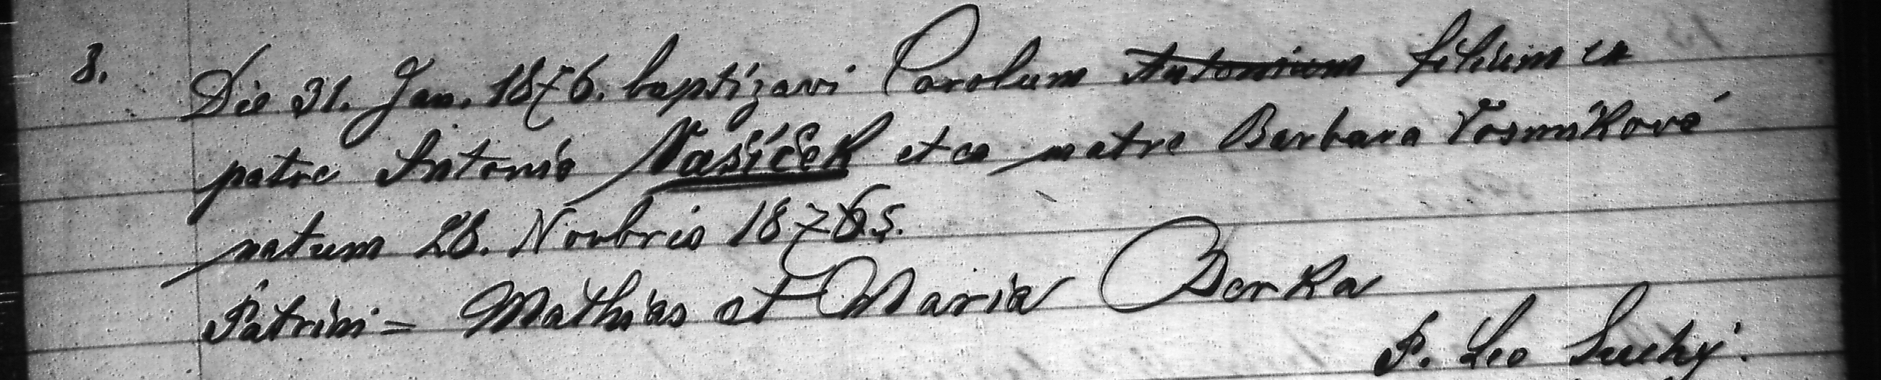 8. Die 31. Jan. 1876. baptizavi Carolum Antonium filium ex
patre Antonio Vašíček et ex matre Barbara Vosmíkové
natum 28. Novbris 18765.
Patrini = Mathias et Maria Berka
P. Leo Suchý.